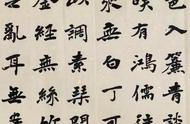 入簾青談
咲有鴻儒往
来無白丁可
以調素琴閱
金經無絲竹
亂耳無案